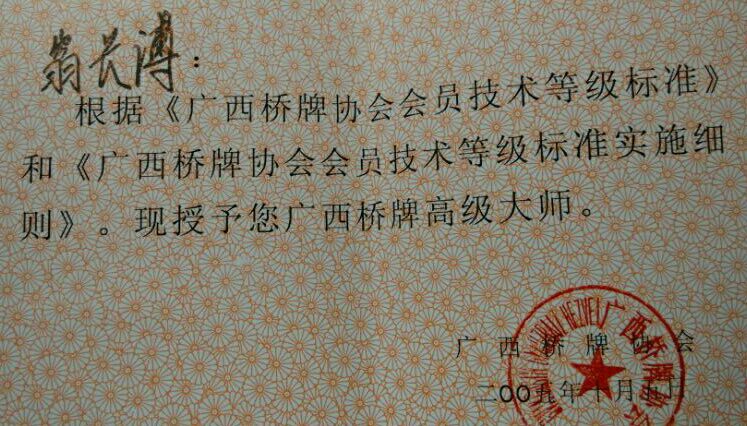 翁长溥：
根据《广西桥牌协会会员技术等级标准》
和《广西桥牌协会会员技术等级标准实施细
则》。现授予您广西桥牌高级大师。
广西桥牌协会
二〇〇五年十月五日